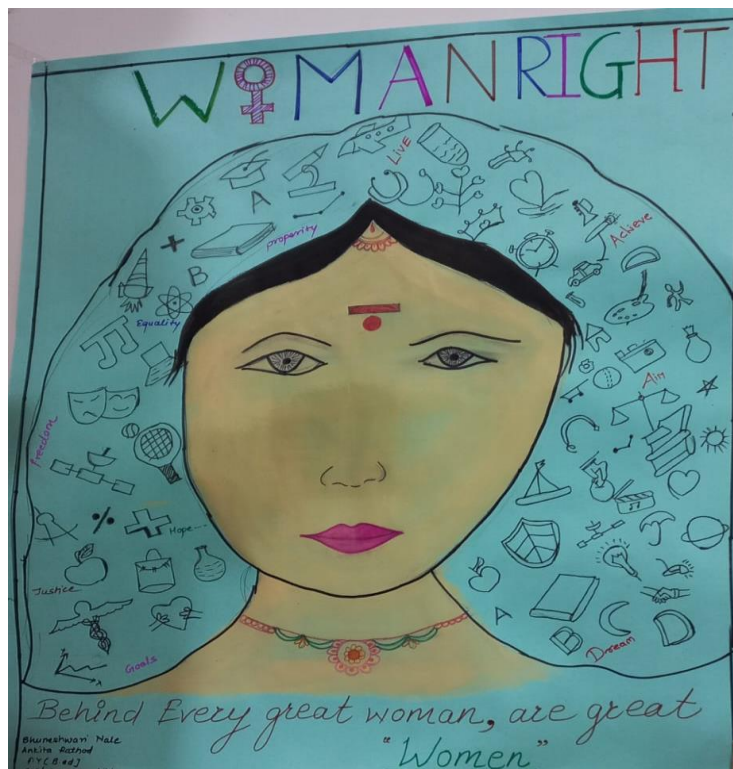 WOMAN RIGHT
LIVE
A
Achieve
properity
B
Equality
Aim
freedom
%
Hope
Justice
A
B
Dream
D
Goals
Behind Every great woman, are great
"Women"
Bhuneshwari Nale
Ankita Rathod